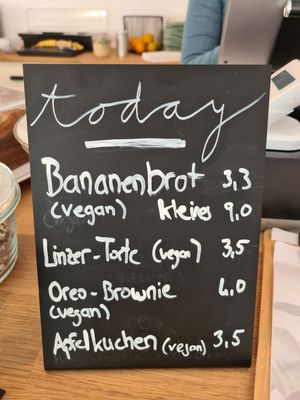 today
Bananenbrot 3,3
(vegan) kleines 9,0
Linzer-Torte (vegan) 3,5
Oreo-Brownie 4,0
(vegan)
Apfelkuchen (vegan) 3,5